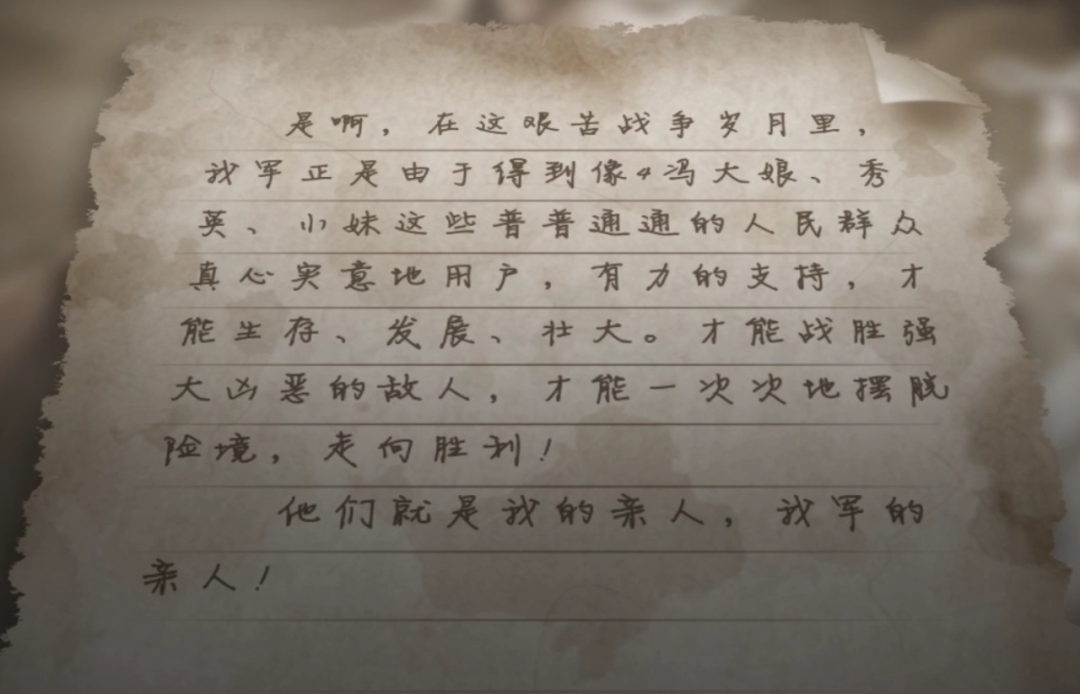 是啊，在这艰苦战争岁月里，
我军正是由于得到像4冯大娘、秀
英、小妹这些普普通通的人民群众
真心实意地用户，有力的支持，才
能生存、发展、壮大。才能战胜强
大凶恶的敌人，才能一次次地摆脱
险境，走向胜利！
他们就是我的亲人，我军的
亲人！